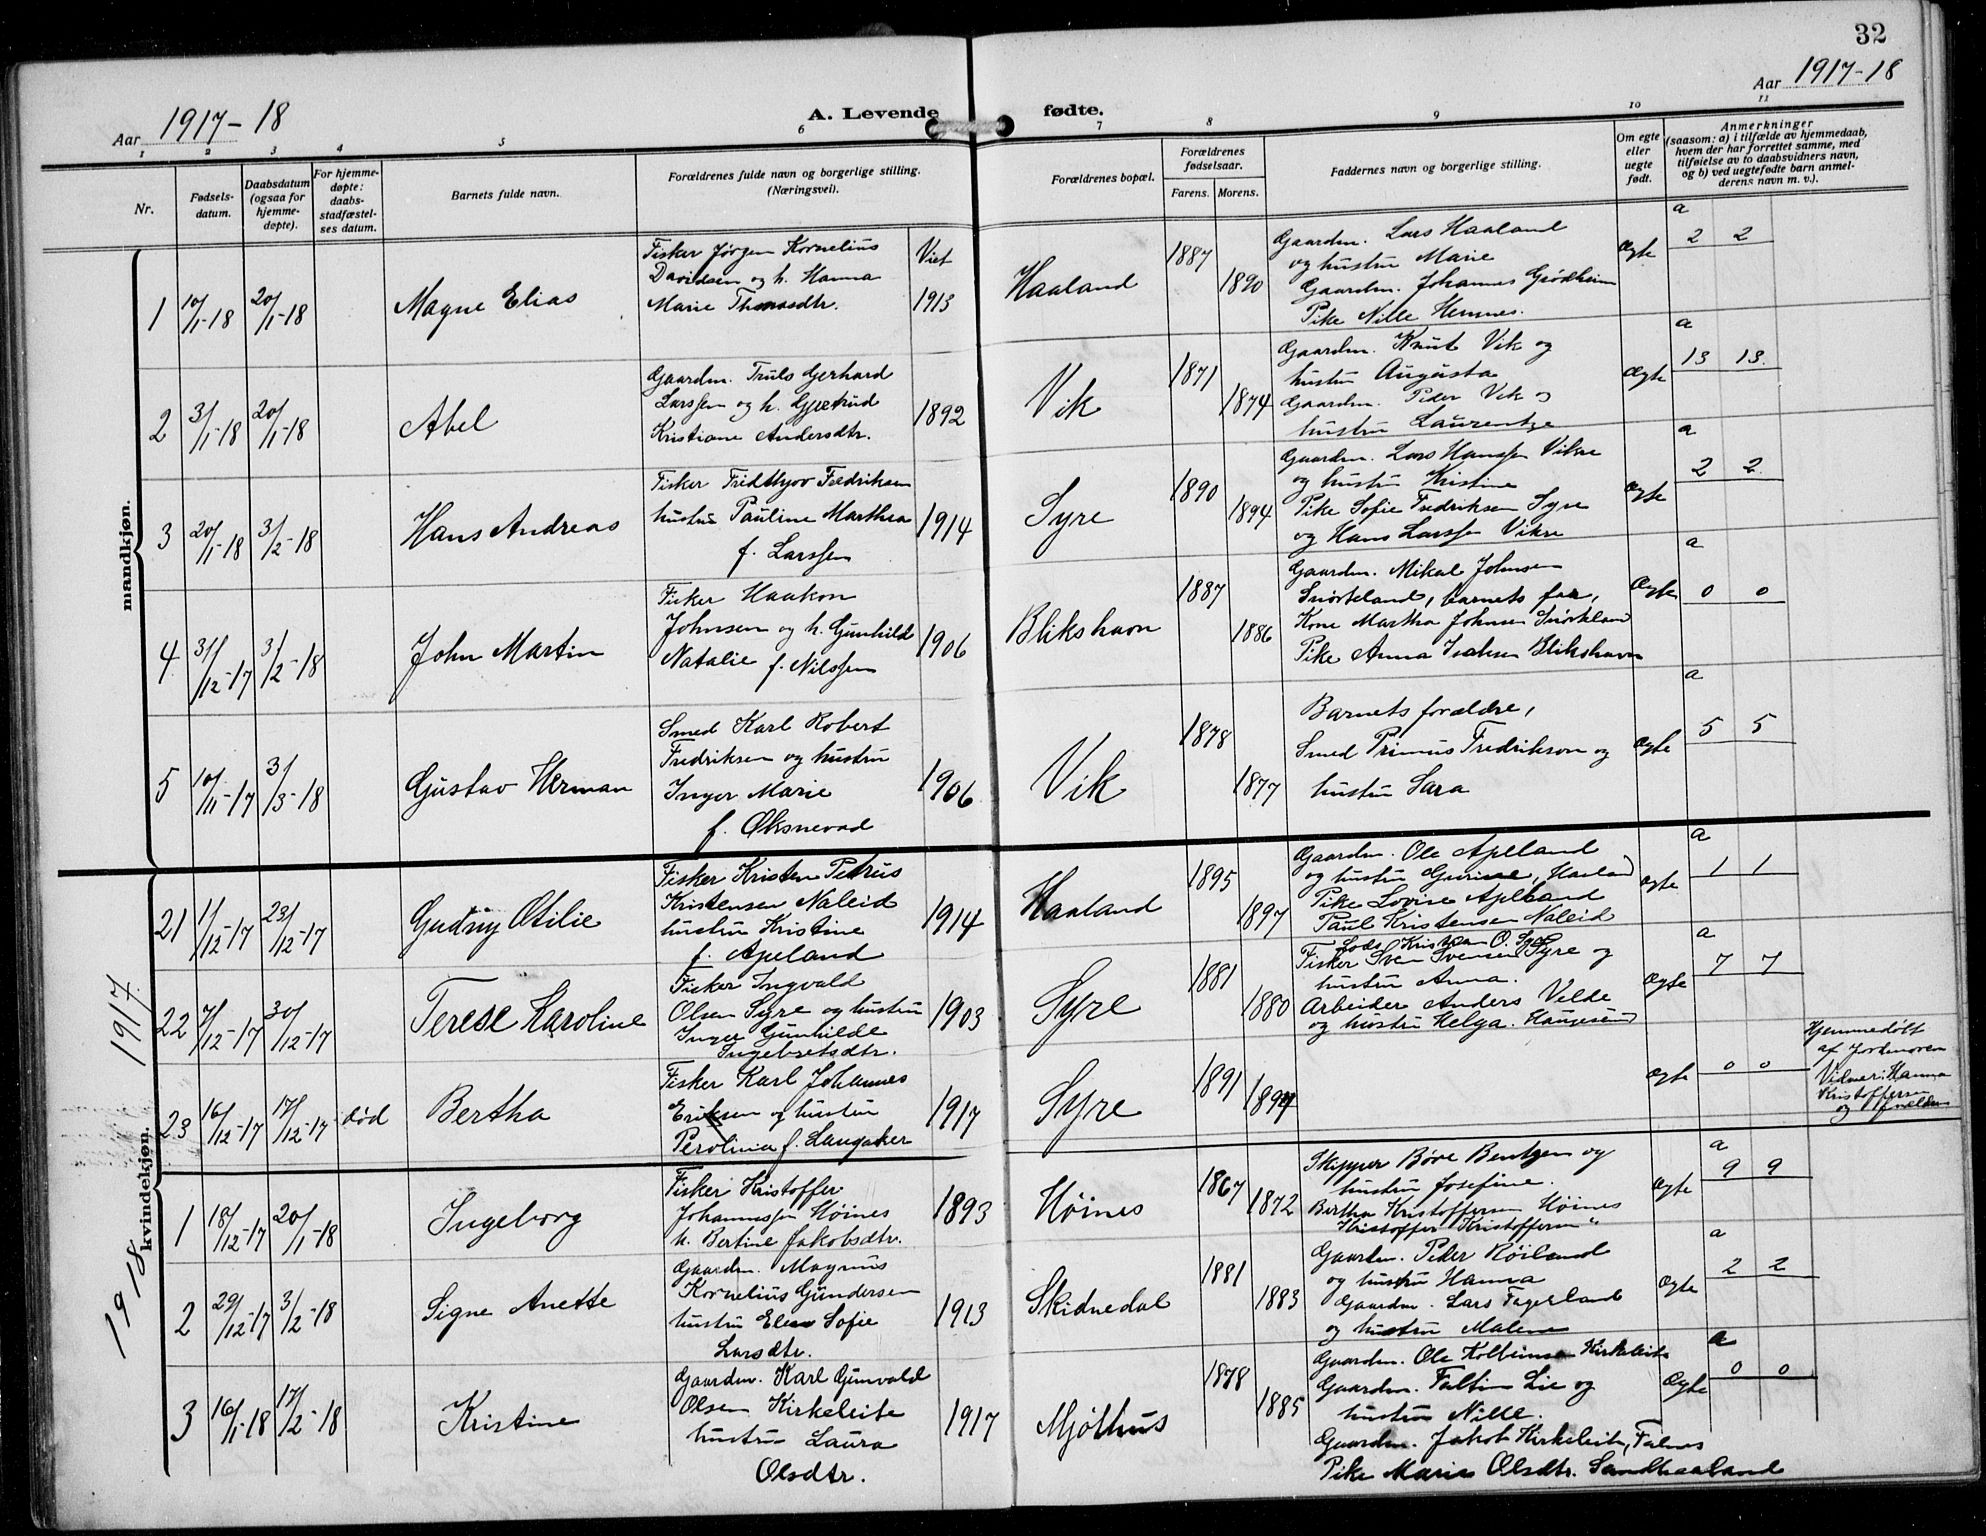 32
Aar 1917-18
A. Levende fødte.
Aar 1917-18
1 2 3 4 5 6 7 8 9 10 11
Nr.
Fødsels-
datum.
Daabsdatum
(ogsaa for
hjemme-
døpte).
For hjemme-
døpte:
daabs-
stadfæstel-
ses datum.
Barnets fulde navn.
Forældrenes fulde navn og borgerlige stilling.
(Næringsvei).
Forældrenes bopæl.
Forældrenes
fødselsaar.
Farens. Morens.
Faddernes navn og borgerlige stilling.
Om egte
eller
uegte
født.
Anmerkninger
(saasom: a) i tilfælde av hjemmedaab,
hvem der har forrettet samme, med
tilføielse av to daabsvidners navn,
og b) ved uegtefødte barn anmel-
derens navn m. v.).
mandkjøn.
1 10/1-18 20/1-18 Magne Elias
Fisker Jørgen Kornelius
Davidsen og h. Hanna
Marie Thomasdtr.
Viet
1913
Haaland 1887 1890
Gaardm. Lars Haaland
og hustru Marie
Gaardm. Johannes Grødheim
Pike Nille Hemnes.
Ægte
a
2 2
2 3/1-18 20/1-18 Abel
Gaardm. Truls Gerhard
Larssen og h. Gjertrud
Kristiane Andersdtr.
1892
Vik 1871 1874
Gaardm. Knut Vik og
hustru Augusta
Gaardm. Peder Vik og
hustru Laurentze
Ægte
a
13 13.
3 20/1-18 3/2-18 Hans Andreas
Fisker Fridthjov Fredriksen
hustru Pauline Marthea
f. Larssen
1914
Syre 1890 1894
Gaardm. Lars Hanssen Vikre
og hustru Kristine
Pike Sofie Fredriksen Syre
og Hans Larssen Vikre
Ægte
a
2 2.
4 31/12-17 3/2-18 John Martin
Fisker Haakon
Johnsen og h. Gunhild
Natalie f. Nilssen
1906
Blikshavn 1887 1886
Gaardm. Mikal Johnsen
Snørteland, barnets far,
Kone Martha Johnsen Snørteland
Pike Anna Isaksen Blikshavn
Ægte
a
0 0
5 10/11-17 3/3-18 Gustav Herman
Smed Karl Robert
Fredriksen og hustru
Inger Marie
f. Øksnevad
1906
Vik 1878 1877
Barnets forældre,
Smed Primus Fredrikson og
hustru Sara
Ægte
a
5 5
1917
kvindekjøn.
21 1/12-17 23/12-17 Gudny Otilie
Fisker Kristen Petrus
Kristensen Naleid
hustru Kristine
f. Apeland
1914
Haaland 1895 1897
Gaardm. Ole Apeland
og hustru Gurine, Haaland
Pike Lovise Apeland
Paul Kristensen Naleid
Ægte
a
1 1
22 7/12-17 30/12-17 Terese Karoline
Fisker Ingvald
Olsen Syre og hustru
Inger Gunhilde
Ingebretsdtr.
1903
Syre 1881 1880
Lods Kristen O. Syre
Fisker Sven Svensen Syre og
hustru Anna.
Arbeider Anders Velde
og hustru Helga. Haugesund
Ægte
a
7 7
23 16/12-17 17/12-17 død Bertha
Fisker Karl Johannes
Eriksen og hustru
Perolina f. Langaker
1917
Syre 1891 1894
Ægte
0 0
Hjemmedøbt
af Jordmoren
Vidner: Hanna
Kristoffersen
og forældre
1918
1 18/12-17 20/1-18 Ingeborg
Fisker Kristoffer
Johannessen Høines
h. Bertine Jakobsdtr.
1893
Høines 1867 1872
Skipper Børe Bentzen og
hustru Josefine.
Bertha Kristoffersen Høines
Kristoffer Kristoffersen "
Ægte
a
9 9
2 29/12-17 3/2-18 Signe Anette
Gaardm. Magnus
Kornelius Gundersen
hustru Elen Sofie
Larsdtr.
1913
Skidnedal 1881 1883
Gaardm. Peder Røiland
og hustru Hanna
Gaardm. Lars Fagerland
og hustru Malene
Ægte
a
2 2
3 16/1-18 17/2-18 Kristine
Gaardm. Karl Gunvald
Olsen Kirkeleite
hustru Laura
Olsdtr.
1917
Mjølhus 1878 1885
Gaardm. Ole Kolbeinsen Kirkeleite
Gaardm. Faltin Lie og
hustru Nille.
Gaardm. Jakob Kirkeleite, Falnes
Pike Marie Olsdtr. Sandhaaland
Ægte
a
0 0